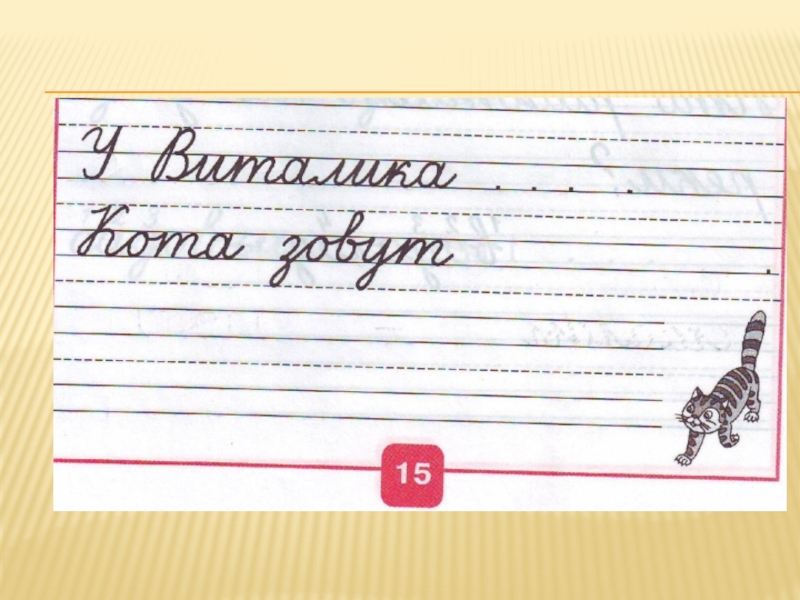 У Виталика . . . .
Кота зовут .
15